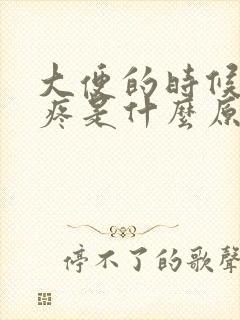 大便的時候
疼是什麼原
停不了的歌聲